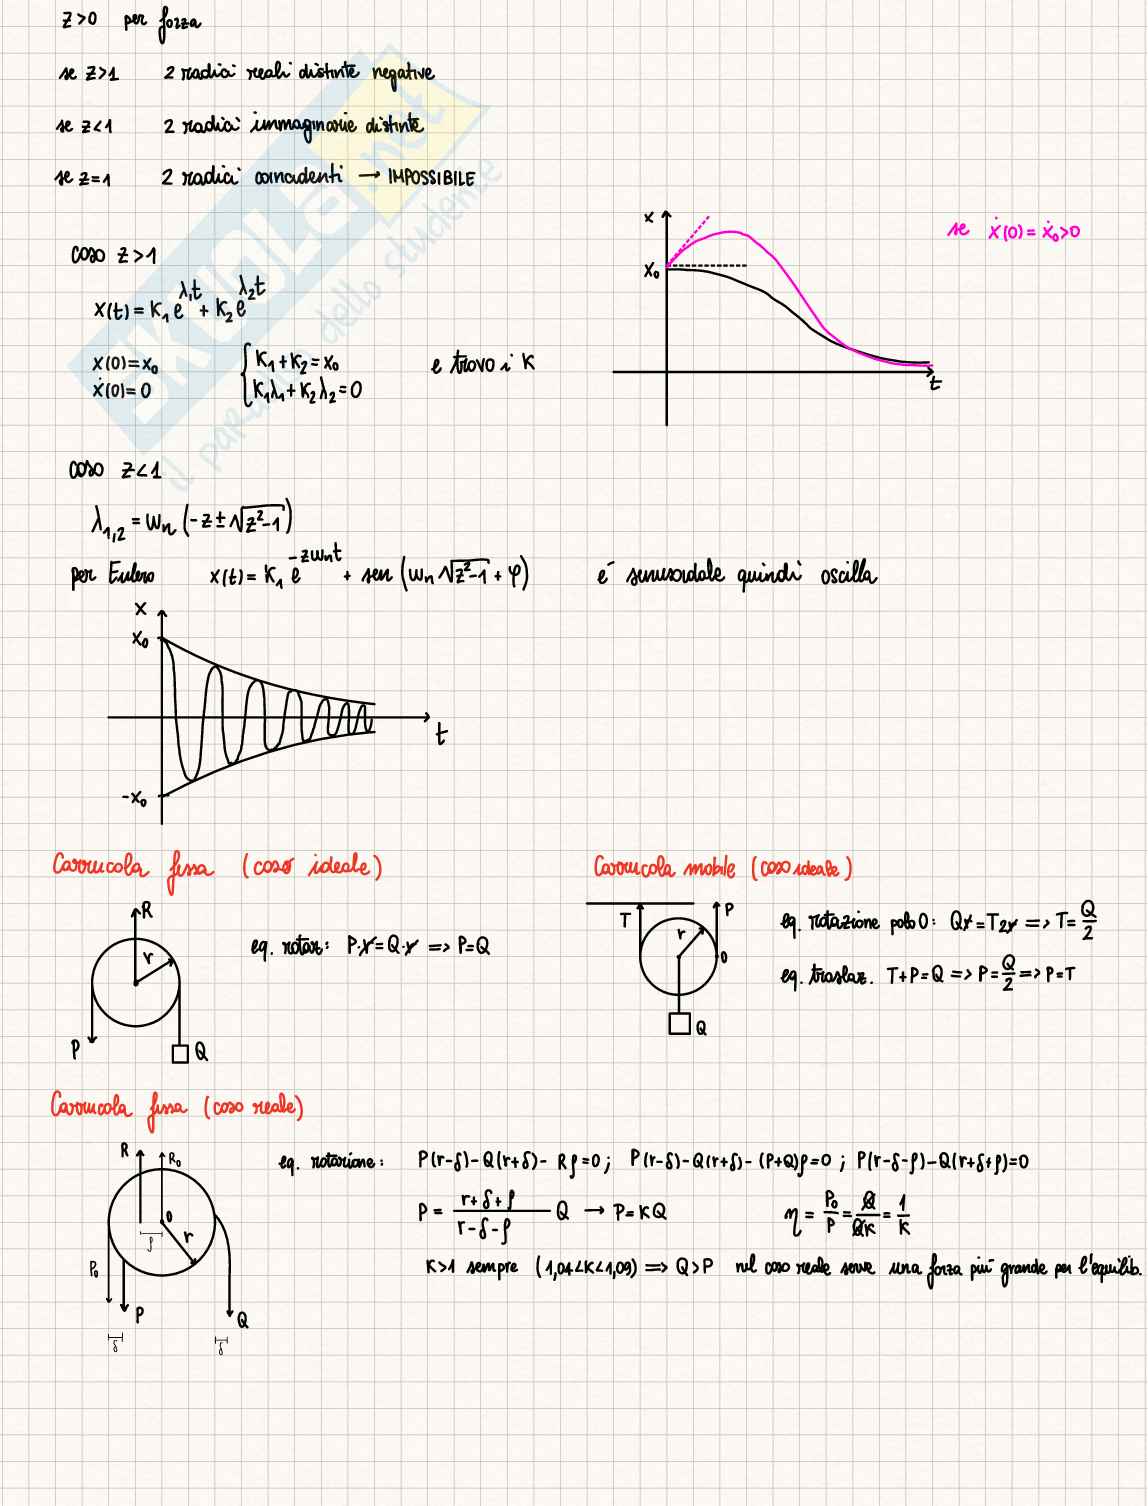 z>0 per forza
se z>1 2 radici reali distinte negative
se z<1 2 radici immaginarie distinte
se z=1 2 radici coincidenti → IMPOSSIBILE
caso z>1
x(t) = K₁e^λ₁t + K₂e^λ₂t
x(0)=x₀
ẋ(0)=0
{ K₁+K₂=x₀
K₁λ₁+K₂λ₂=0
e trovo i K
x
x₀
t
se ẋ(0)=ẋ₀>0
caso z<1
λ₁,₂ = ωn (-z±√z²-1)
per Eulero x(t) = K₁ e^-zωnt + sen (ωn √z²-1 + φ) e' sinusoidale quindi oscilla
x
x₀
t
-x₀
Carrucola fissa (caso ideale)
R
r
P
Q
eq. rotaz: P·r=Q·r => P=Q
Carrucola mobile (caso ideale)
T
P
r
O
Q
eq. rotazione polo O: Qr=T2r => T=Q/2
eq. traslaz. T+P=Q => P=Q/2 => P=T
Carrucola fissa (caso reale)
R
R₀
O
ρ
r
P₀
P
Q
δ
δ
eq. rotazione: P(r-δ)-Q(r+δ)- Rρ=0 ; P(r-δ)-Q(r+δ)-(P+Q)ρ=0 ; P(r-δ-ρ)-Q(r+δ+ρ)=0
P = r+δ+ρ/r-δ-ρ Q → P=KQ η = P₀/P = Q/QK = 1/K
K>1 sempre (1,04<K<1,09) => Q>P nel caso reale serve una forza più grande per l'equilib.
SKUOLA.net
il paradiso dello studente